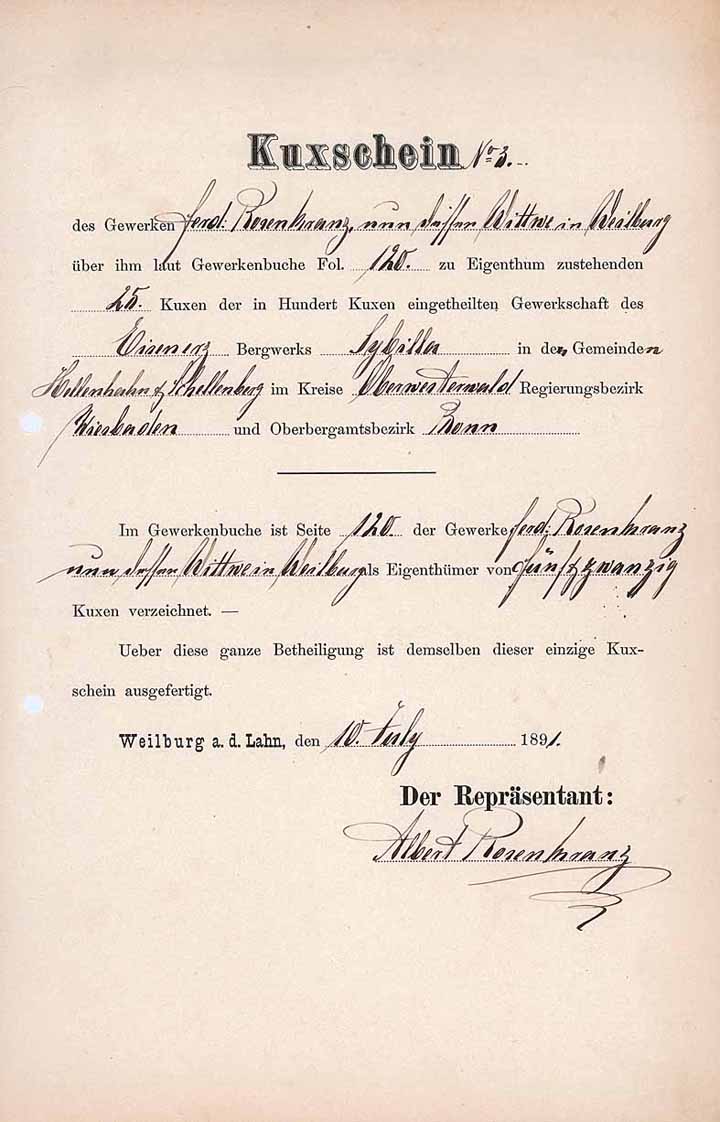 Kuxschein No 3.
des Gewerken Ferd: Rosenkranz, nun dessen Wittwe in Weilburg
über ihm laut Gewerkenbuche Fol. 120. zu Eigenthum zustehenden
25. Kuxen der in Hundert Kuxen eingetheilten Gewerkschaft des
Eisenerz Bergwerks Sybilla in den Gemeinden
Hellenhahn & Schellenberg im Kreise Oberwesterwald Regierungsbezirk
Wiesbaden und Oberbergamtsbezirk Bonn
Im Gewerkenbuche ist Seite 120. der Gewerke Ferd: Rosenkranz
nun dessen Wittwe in Weilburg als Eigenthümer von fünf & zwanzig
Kuxen verzeichnet. —
Ueber diese ganze Betheiligung ist demselben dieser einzige Kux-
schein ausgefertigt.
Weilburg a. d. Lahn, den 10. July 1891.
Der Repräsentant:
Albert Rosenkranz